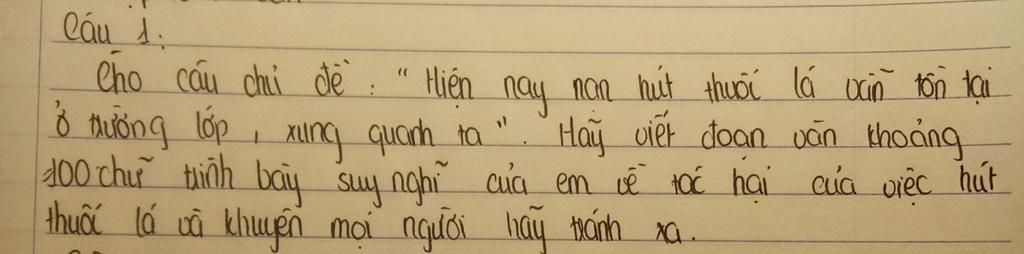 Câu 1:
Cho câu chủ đề: "Hiện nay nạn hút thuốc lá vẫn tồn tại
ở trường lớp, xung quanh ta". Hãy viết đoạn văn khoảng
100 chữ trình bày suy nghĩ của em về tác hại của việc hút
thuốc lá và khuyên mọi người hãy tránh xa.